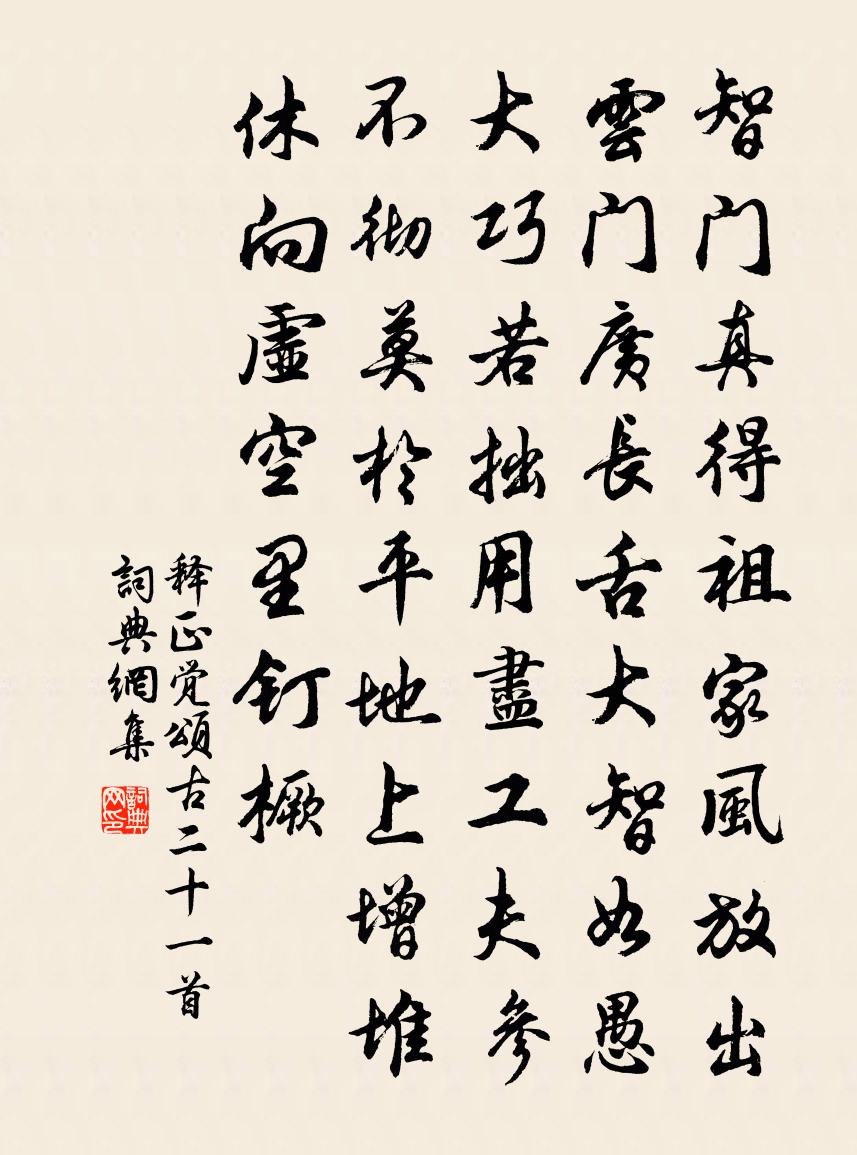 智门真得祖家風放出
雲门廣長舌大智如愚
大巧若拙用盡工夫參
不彻莫於平地上增堆
休向虚空里钉橛
释正覺頌古二十一首
詞典網集
詞典网印